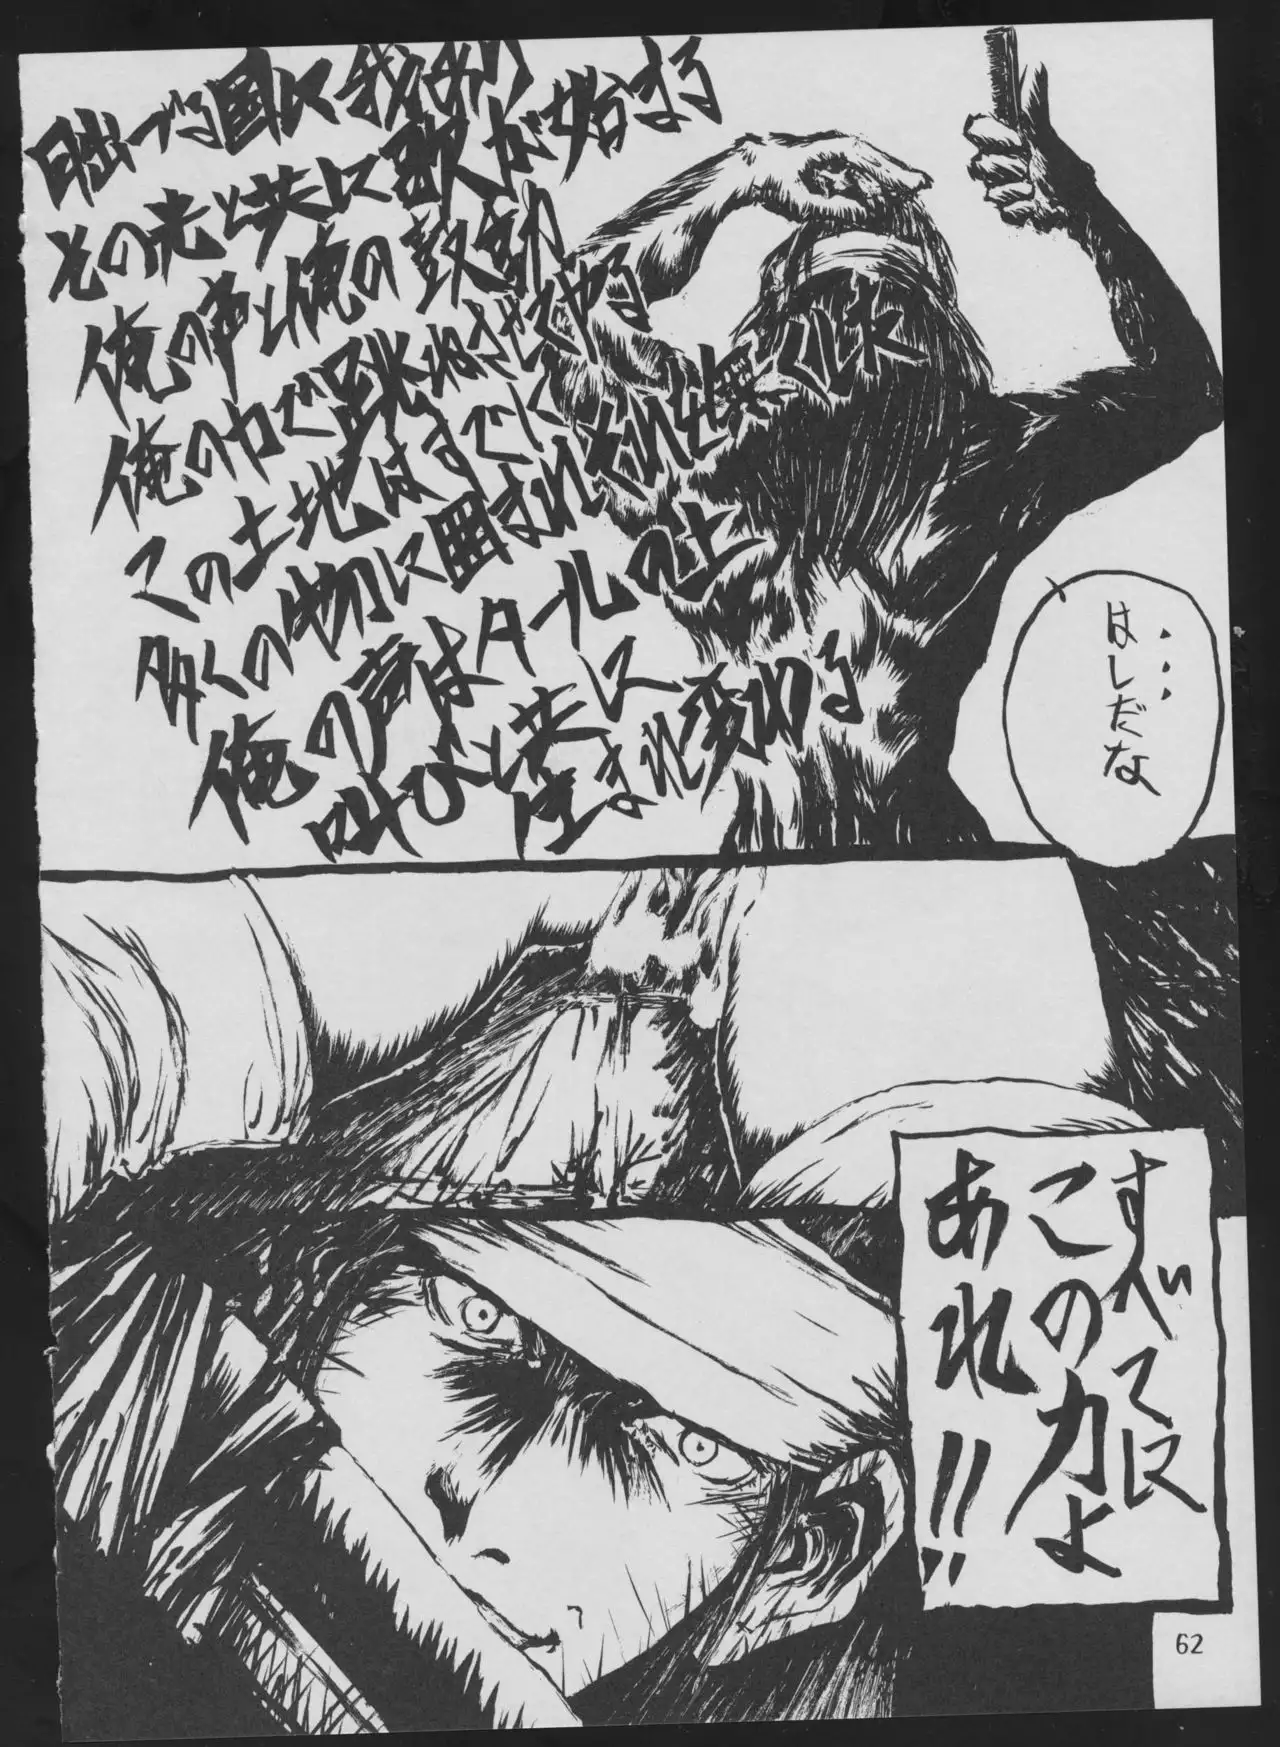 日出づる国に我あり
その光と共に歌が始まる
俺の声と俺の鼓動
俺の力で跳ねさせてやる
この土地はすでに
多くの物に囲まれくだれど無くした
俺の声はタールの吐
叫びと共に
生まれ変わる
・・・
はしだな
すべてに
この力よ
あれ!!
62